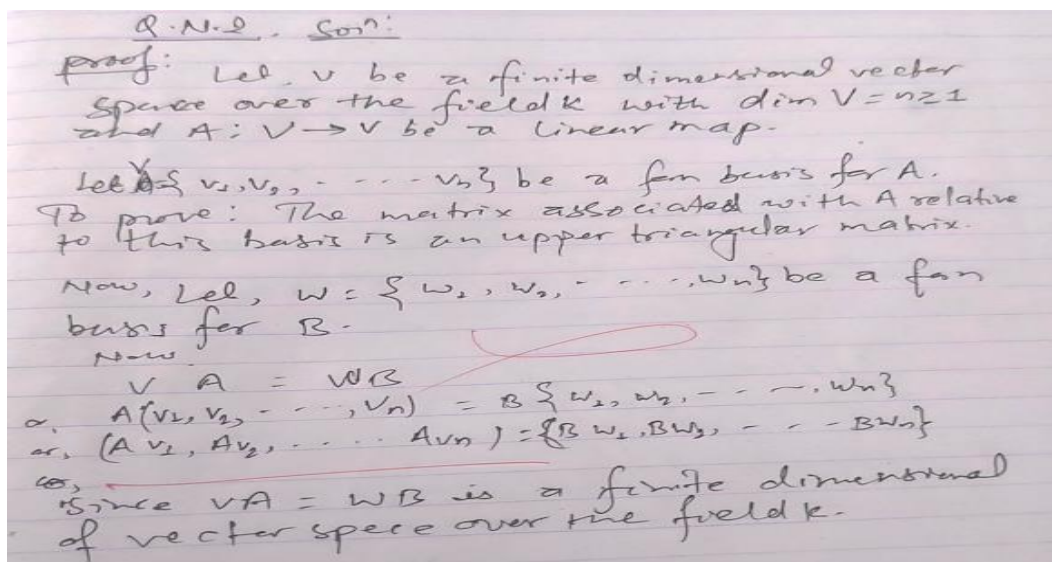 Q.N.2. Soln:
proof: Let V be a finite dimensional vector
space over the field K with dim V = n≥1
and A: V → V be a linear map.
Let V={ v1, v2, - - - - vn} be a fan basis for A.
To prove: The matrix associated with A relative
to this basis is an upper triangular matrix.
Now, Let, W = { w1, w2, - - - -, wn} be a fan
basis for B.
Now
V A = WB
or, A(v1, v2, - - - -, vn) = B { w1, w2, - - - -, wn}
or, (A v1, Av2, . . . . . Avn ) = {B w1, Bw2, - - - Bwn}
or,
Since VA = WB is a finite dimensional
of vector spece over the field k.